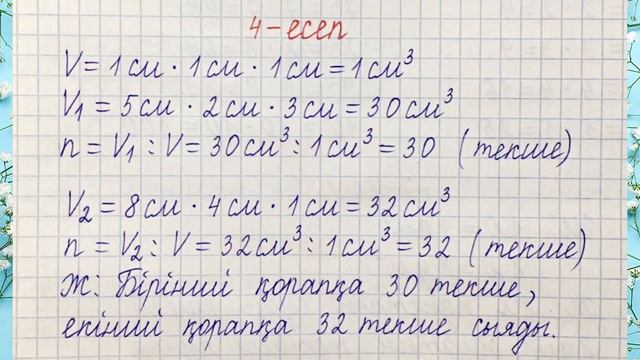 4-есеп
V = 1 см · 1 см · 1 см = 1 см³
V₁ = 5 см · 2 см · 3 см = 30 см³
n = V₁ : V = 30 см³ : 1 см³ = 30 (текше)
V₂ = 8 см · 4 см · 1 см = 32 см³
n = V₂ : V = 32 см³ : 1 см³ = 32 (текше)
Ж: Бірінший қорапқа 30 текше,
екінший қорапқа 32 текше сыяды.